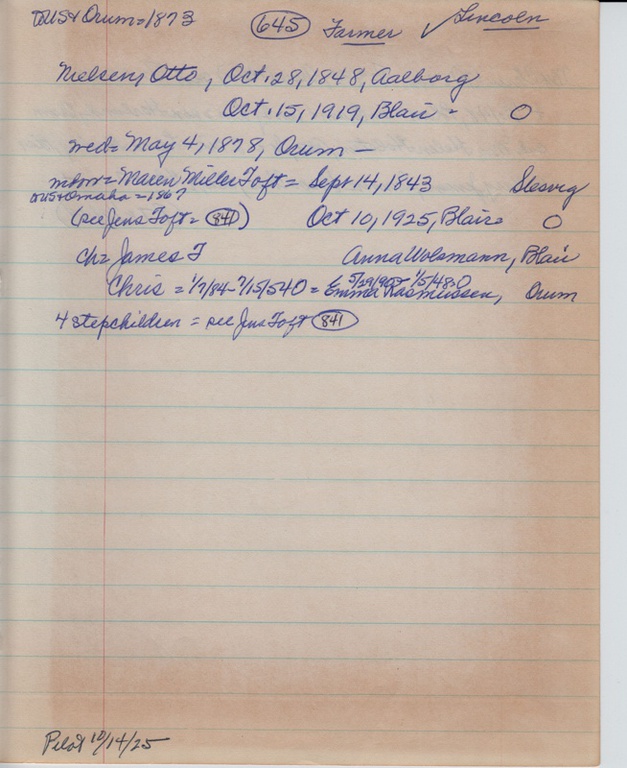 to US & Orum = 1873 645 Farmer ✓ Lincoln
Nielsen, Otto, Oct. 28, 1848, Aalborg
Oct. 15, 1919, Blair - O
wed = May 4, 1878, Orum -
Maren Miller Toft = Sept 14, 1843 Slesvig
to US & Omaha = 1867
(see Jens Toft = 841) Oct 10, 1925, Blair = O
ch = James T Anna Wolsmann, Blair
5/29/90 1/5/48 O
Chris = 1/7/84 - 7/15/54 O = Emma Rasmussen, Orum
4 stepchildren = see Jens Toft 841
Pilot 10/14/25